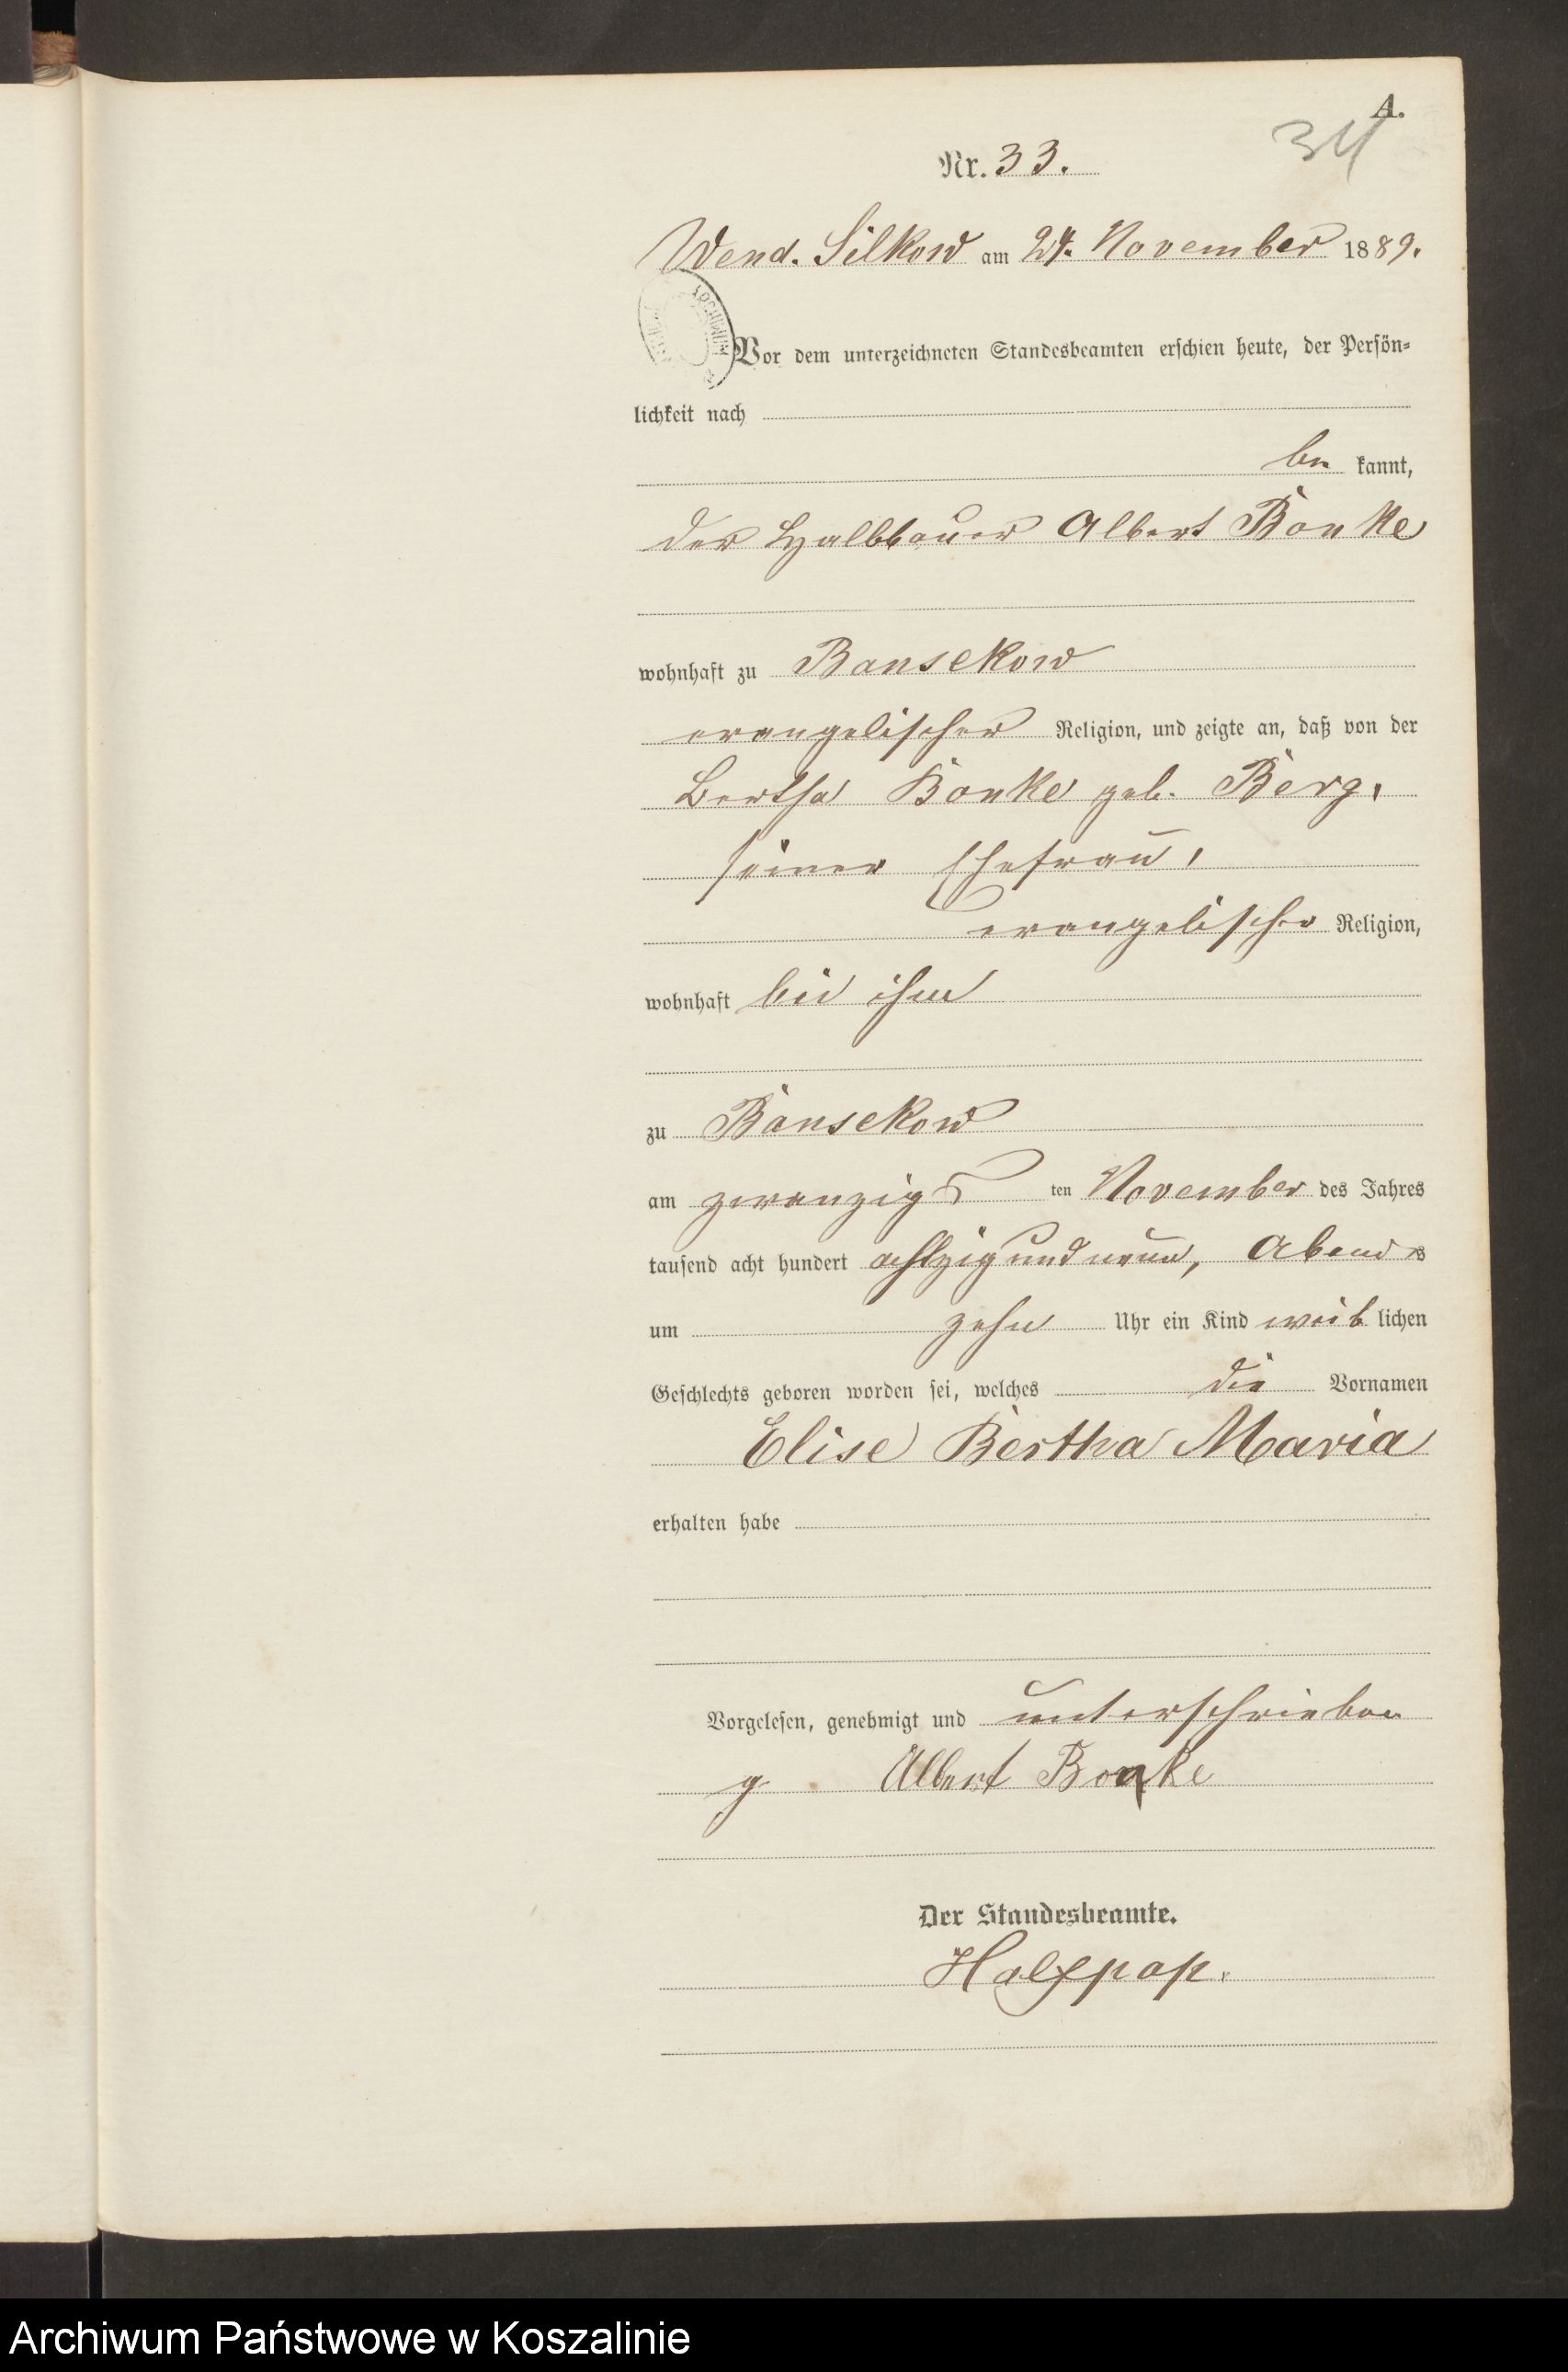 A.
34
Nr. 33.
Wend. Silkow am 24. November 1889.
Vor dem unterzeichneten Standesbeamten erschien heute, der Persön-
lichkeit nach
be kannt,
der Halbbauer Albert Bonke
wohnhaft zu Bansekow
evangelischer Religion, und zeigte an, daß von der
Bertha Bonke geb. Berg,
seiner Ehefrau,
evangelischer Religion,
wohnhaft bei ihm
zu Bansekow
am zwanzigs ten November des Jahres
tausend acht hundert achtzig und neun, Abends
um zehn Uhr ein Kind weib lichen
Geschlechts geboren worden sei, welches die Vornamen
Elise Bertha Maria
erhalten habe
Vorgelesen, genehmigt und unterschrieben
g. Albert Bonke
Der Standesbeamte.
Halfpap.
Archiwum Państwowe w Koszalinie